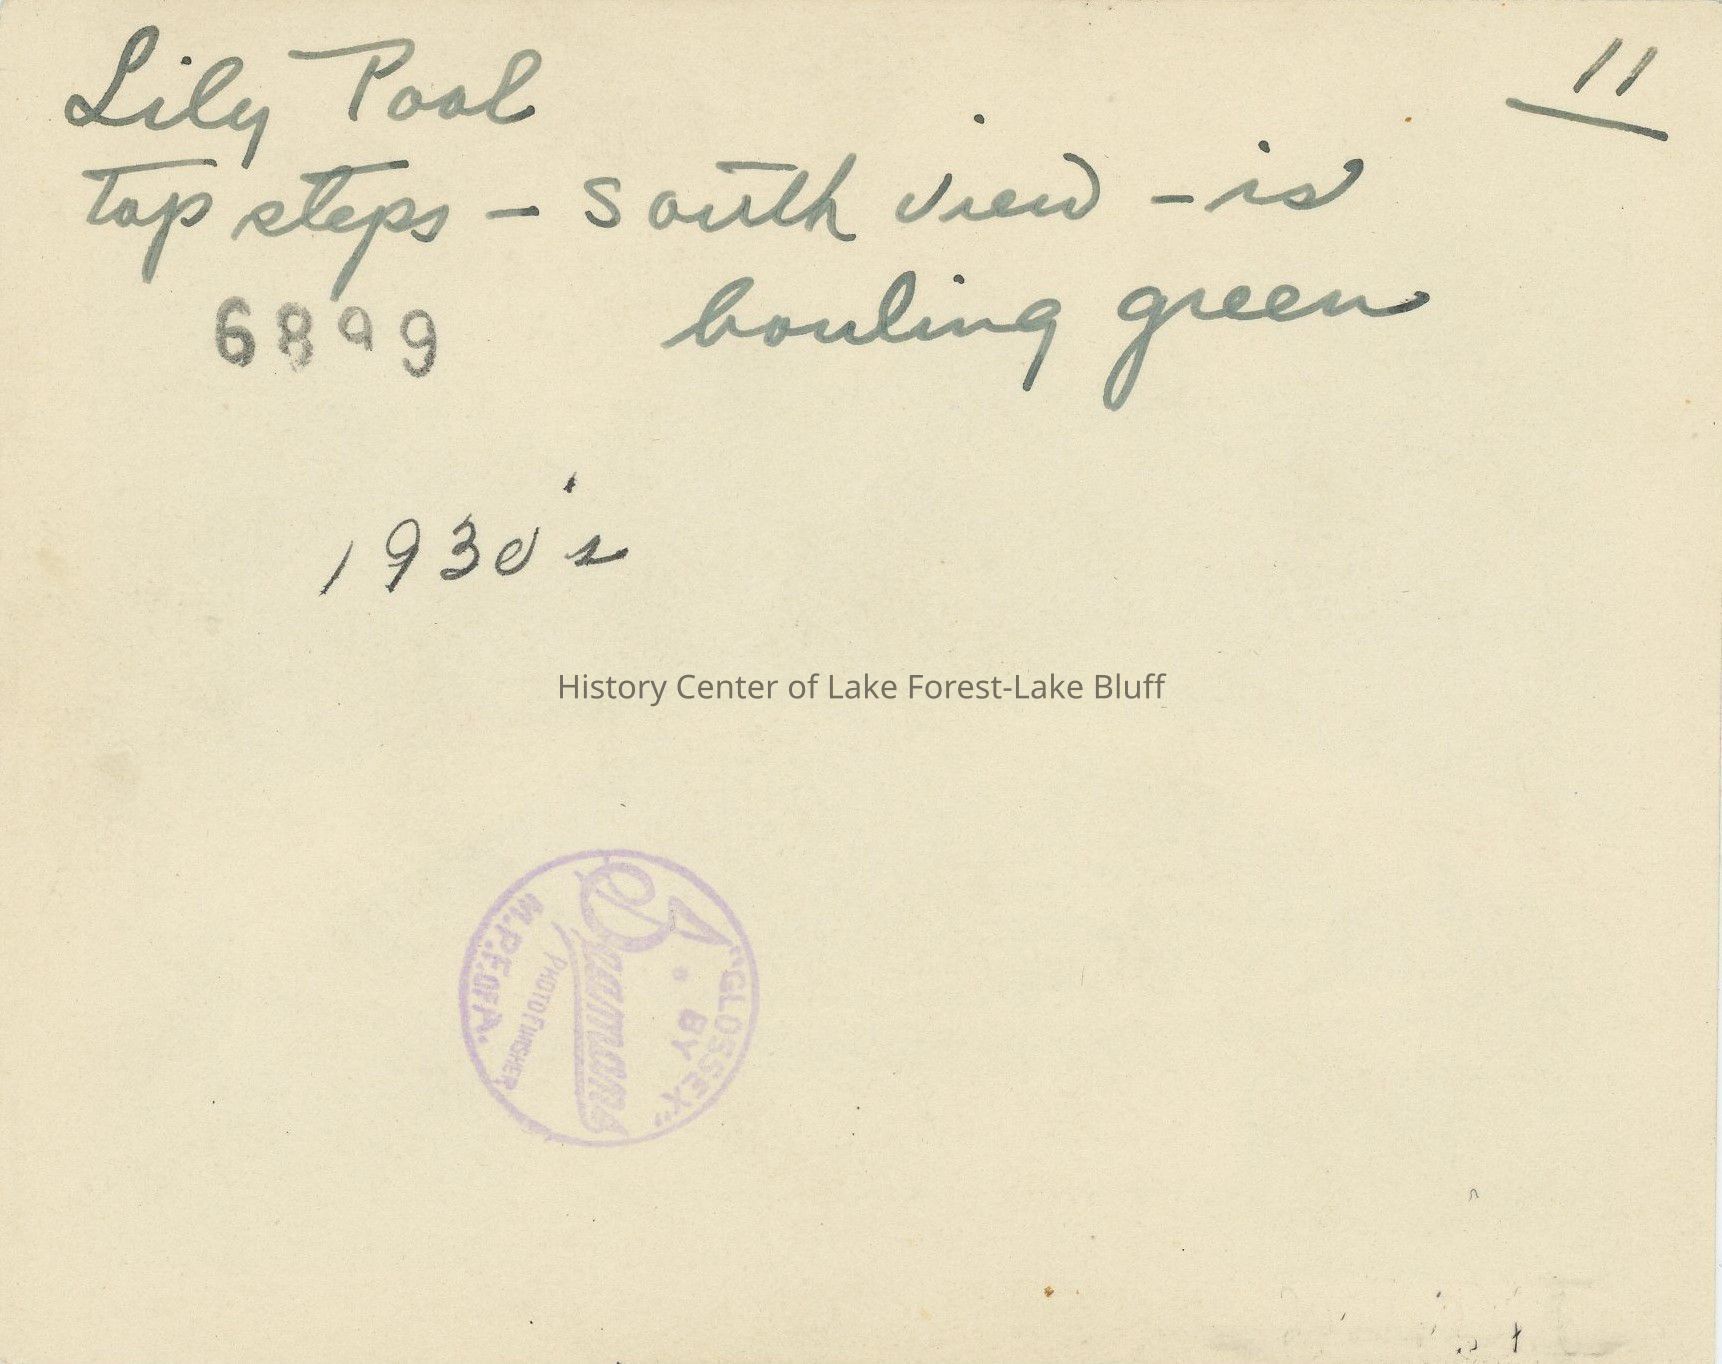 Lily Pool
11
top steps – south view – is
bowling green
6899
1930's
History Center of Lake Forest-Lake Bluff
A "GLOSSEX"
BY
PHOTO FINISHER
M.P.F. OF A.